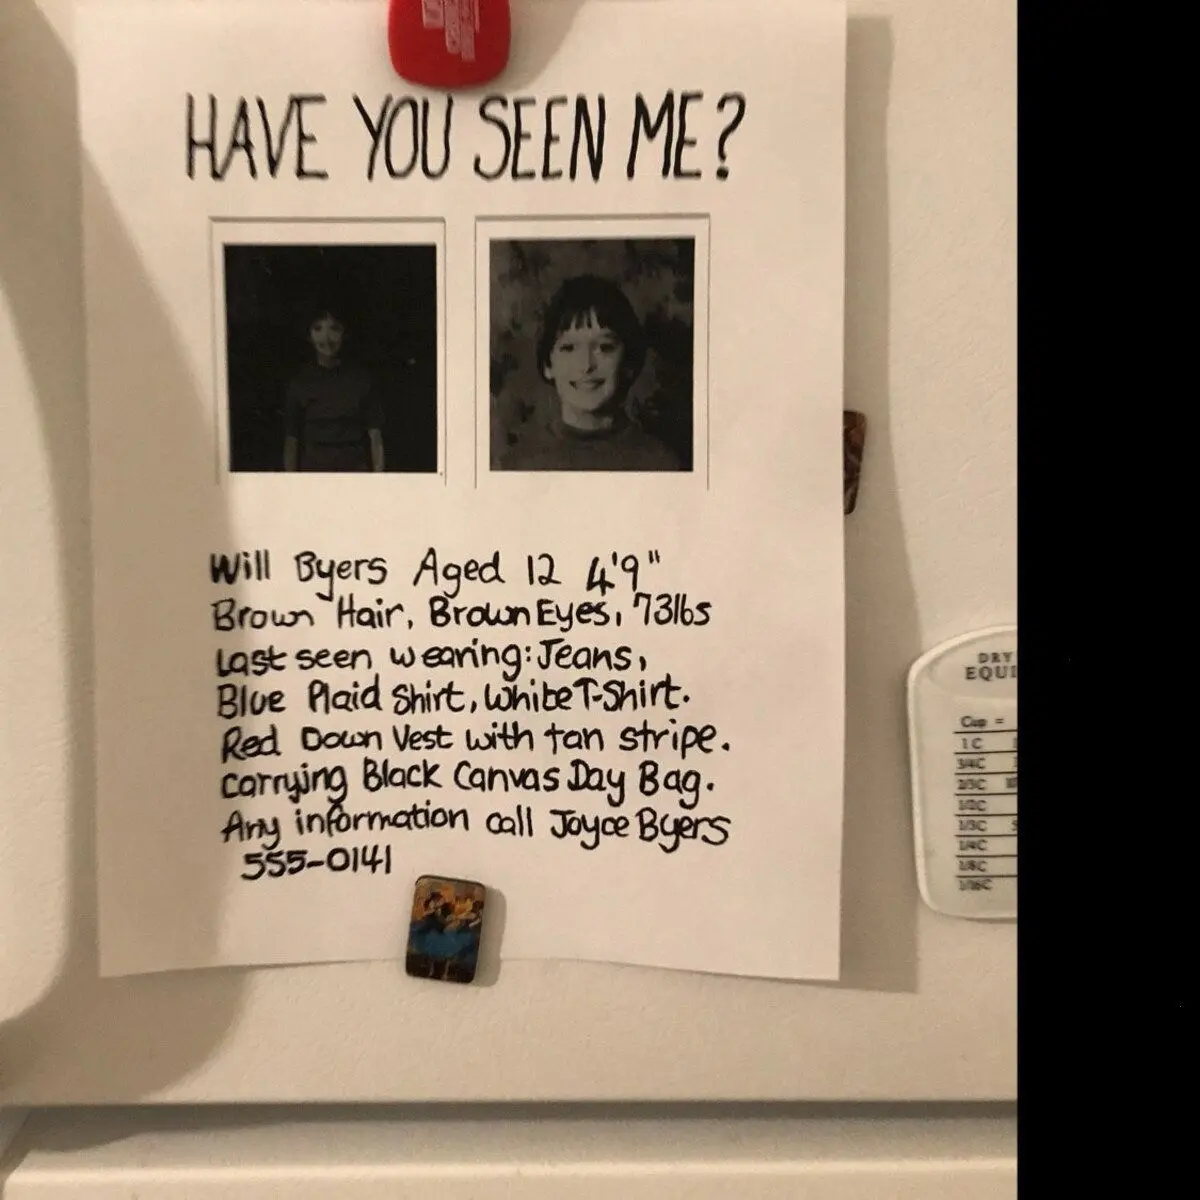 HAVE YOU SEEN ME?
Will Byers Aged 12 4'9"
Brown Hair, Brown Eyes, 73lbs
Last seen wearing: Jeans,
Blue Plaid Shirt, White T-Shirt.
Red Down Vest with tan stripe.
Carrying Black Canvas Day Bag.
Any information call Joyce Byers
555-0141
DRY
EQUI
Cup =
1C
3/4C
2/3C
1/2C
1/3C
1/4C
1/8C
1/16C